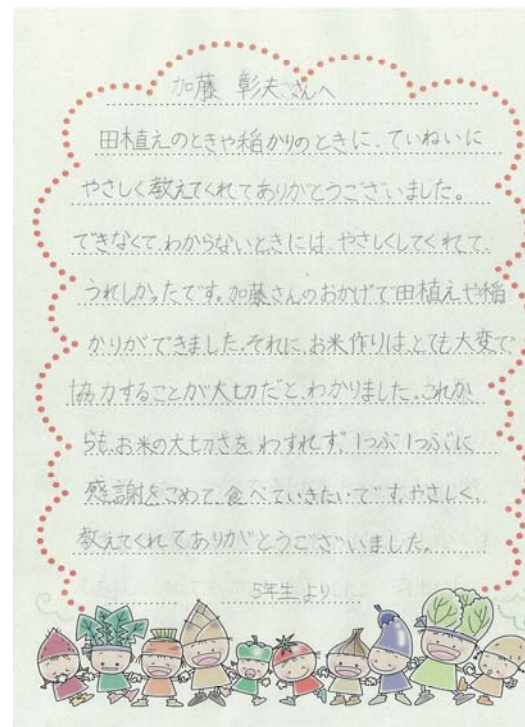 加藤 彰夫さんへ
田植えのときや稲かりのときに、ていねいに
やさしく教えてくれてありがとうございました。
できなくて、わからないときには、やさしくしてくれて、
うれしかったです。加藤さんのおかげで田植えや稲
かりができました。それに、お米作りは、とても大変で
協力することが大切だと、わかりました。これか
らも、お米の大切さを、わすれず、1つぶ1つぶに
感謝をこめて、食べていきたいです。やさしく、
教えてくれてありがとうございました。
5年生より